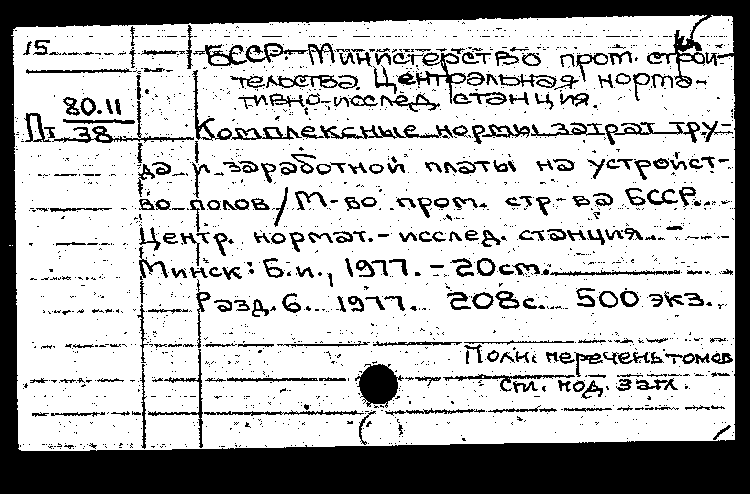 15
БССР. Министерство пром. строи-
тельства. Центральная норма-
тивно-исслед. станция.
80.11
Пт 38
Комплексные нормы затрат тру-
да и заработной платы на устройст-
во полов / М-во пром. стр-ва БССР.
Центр. нормат.-исслед. станция. -
Минск: Б.и., 1977. - 20 cm.
Разд. 6. 1977. 208 с. 500 экз.
Полн. перечень томов
сп. под. загл.